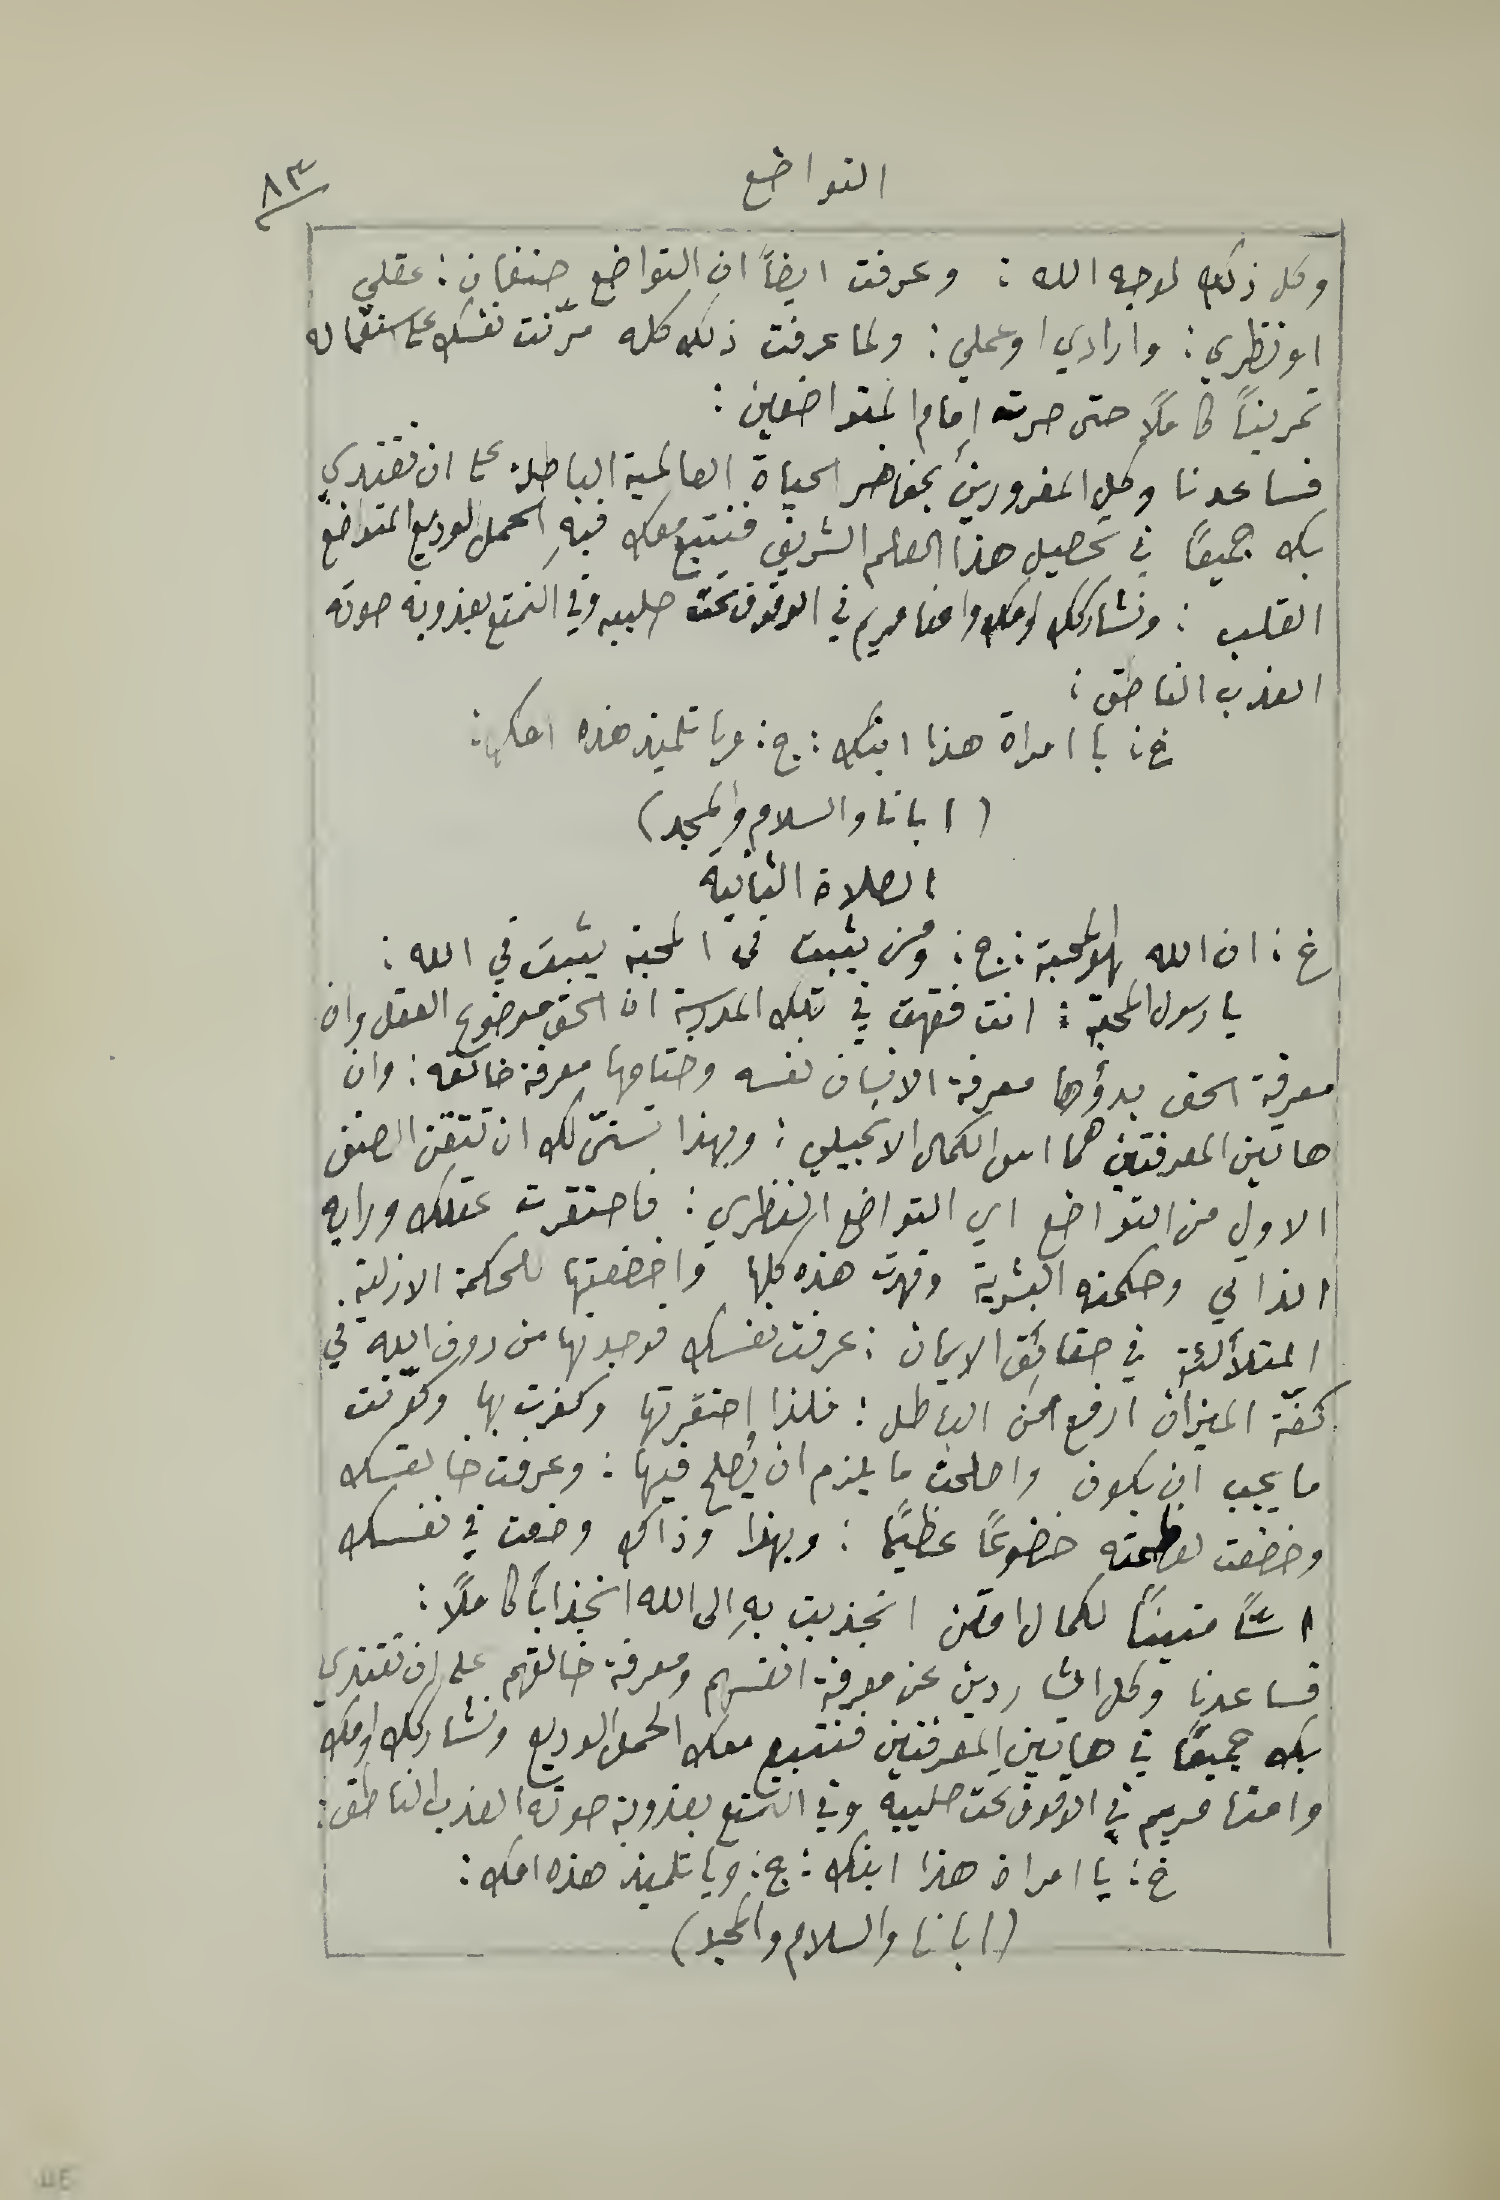 التواضع
٨٣
وكل ذلك لوجه الله : وعرفت ايضاً ان التواضع صنفان : عقلي
او نظري : وارادي او عملي : ولما عرفت ذلك كله مرّنت نفسك على استعماله
تمريناً كاملاً حتى صرت إمام المتواضعين :
فساعدنا وكل المغرورين بمفاخر الحياة العالمية الباطلة على ان نقتدي
بك جميعًا في تحصيل هذا العلم الشريف فنتبع معك فيهِ الحمل الوديع المتواضع
القلب : ونشاركك وامك وامنا مريم في الوقوف تحت صليبه وفي التمتع بعذوبة صوته
العذب الناطق :
خ : يا امراة هذا ابنك : ج : ويا تلميذ هذه امك :
( ابانا والسلام والمجد )
الصلاة الثانية
خ : ان الله لهو المحبة : ج : ومن يثبت في المحبة يثبت في الله :
يا رسول المحبّة : انت فقهت في تلك المدرسة ان الحق موضوع العقل وان
معرفة الحق بدؤها معرفة الانسان نفسه وختامها معرفة خالقه : وان
هاتين المعرفتين هما اس الكمال الانجيلي : وبهذا تسنّى لك ان تتقن الصنف
الاول من التواضع اي التواضع النظري : فاحتقرت عقلك ورايه
الذاتي وحكمته البشرية وقهرت هذه كلها واخضعتها للحكمة الازلية
المتلألئة في حقائق الايمان : عرفت نفسك فوجدتها من دون الله في
كفّة الميزان ارفع من الباطل : فلذا احتقرتها وكفرت بها وكوّنت
ما يجب ان يكون واصلحت ما يلزم ان يُصلح فيها : وعرفت خالقك
وخضعت لعظمته خضوعًا عظيمًا : وبهذا وذاك وضعت في نفسك
اسًّا متينًا لكمال امتن انجذبت بهِ إلى الله انجذابًا كاملاً :
فساعدنا وكل الشاردين عن معرفة انفسهم ومعرفة خالقهم على ان نقتدي
بك جميعًا في هاتين المعرفتين فنتبع معك الحمل الوديع ونشاركك وامك
وامنا مريم في الوقوف تحت صليبه وفي التمتع بعذوبة صوته العذب الناطق :
خ : يا امراة هذا ابنك : ج : ويا تلميذ هذه امك :
( ابانا والسلام والمجد )